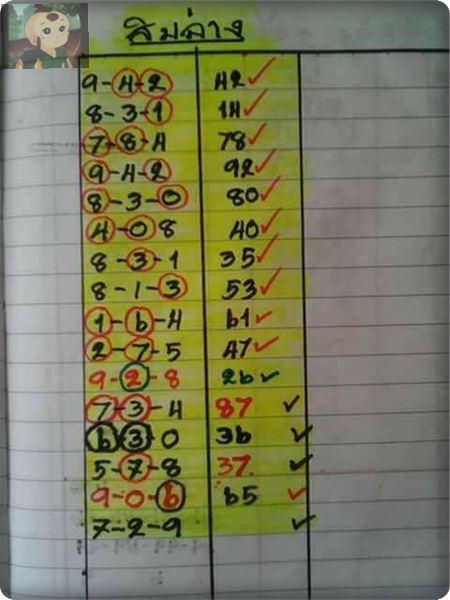 สิบล่าง
9-4-2 42 ✓
8-3-1 14 ✓
7-8-4 78 ✓
9-4-2 92 ✓
8-3-0 80 ✓
4-0 8 40 ✓
8-3-1 35 ✓
8-1-3 53 ✓
1-6-4 61 ✓
2-7-5 47 ✓
9-2-8 26 ✓
7-3-4 87 ✓
6 3 0 36 ✓
5-7-8 37 ✓
9-0-6 65 ✓
7-2-9 ✓